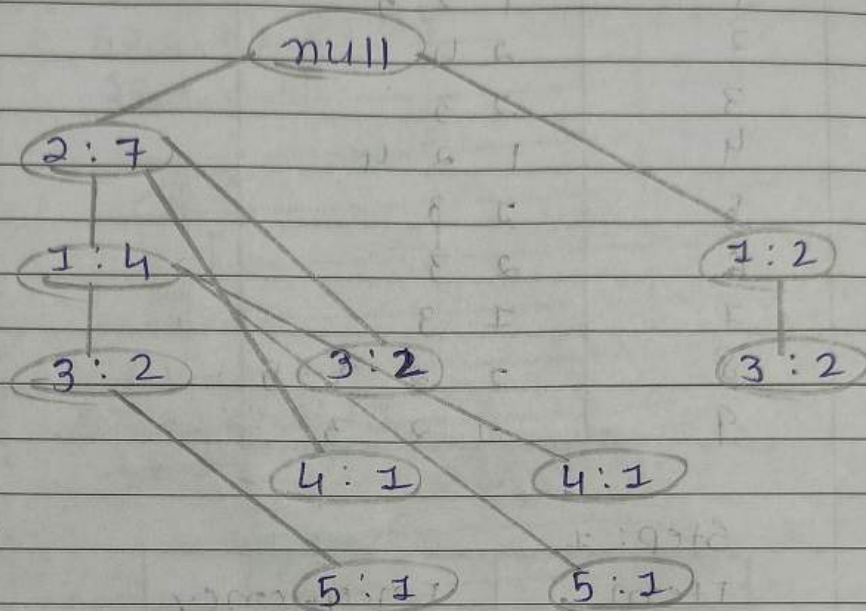 null
2 : 7
1 : 4 1 : 2
3 : 2 3 : 2 3 : 2
4 : 1 4 : 1
5 : 1 5 : 1